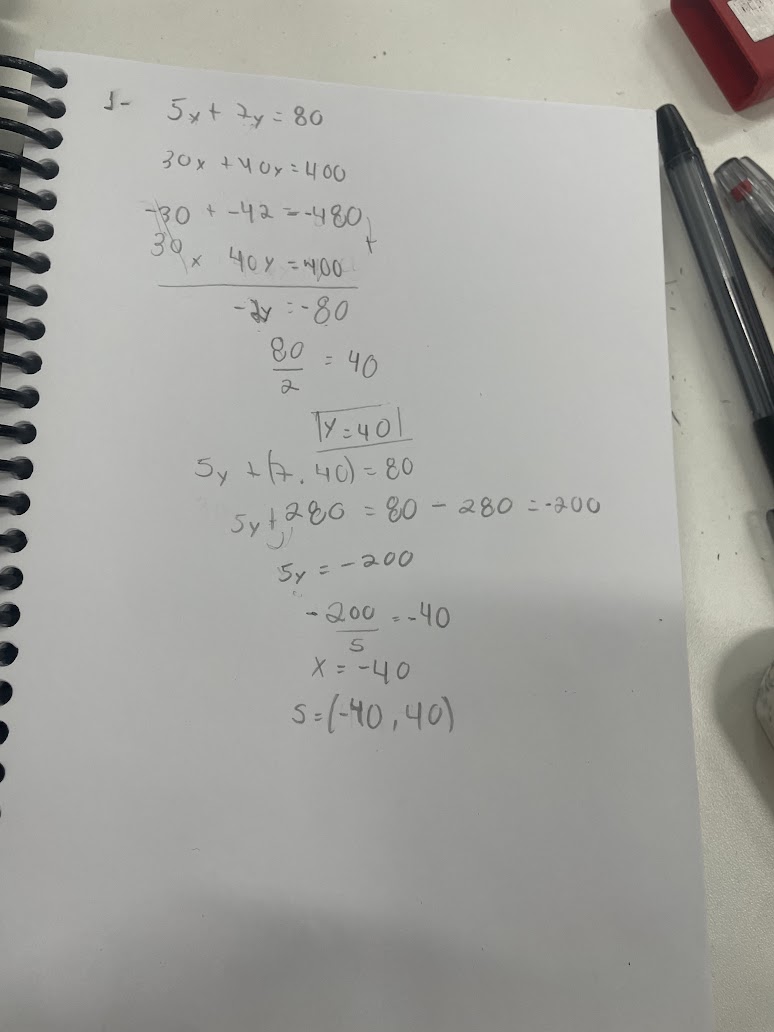 1- 5x + 7y = 80
30x + 40y = 400
-30 + -42 = -480
30x 40y = 400
+
-2y = -80
80/2 = 40
y = 40
5y + (7 . 40) = 80
5y + 280 = 80 - 280 = -200
5y = -200
-200/5 = -40
x = -40
S = (-40, 40)